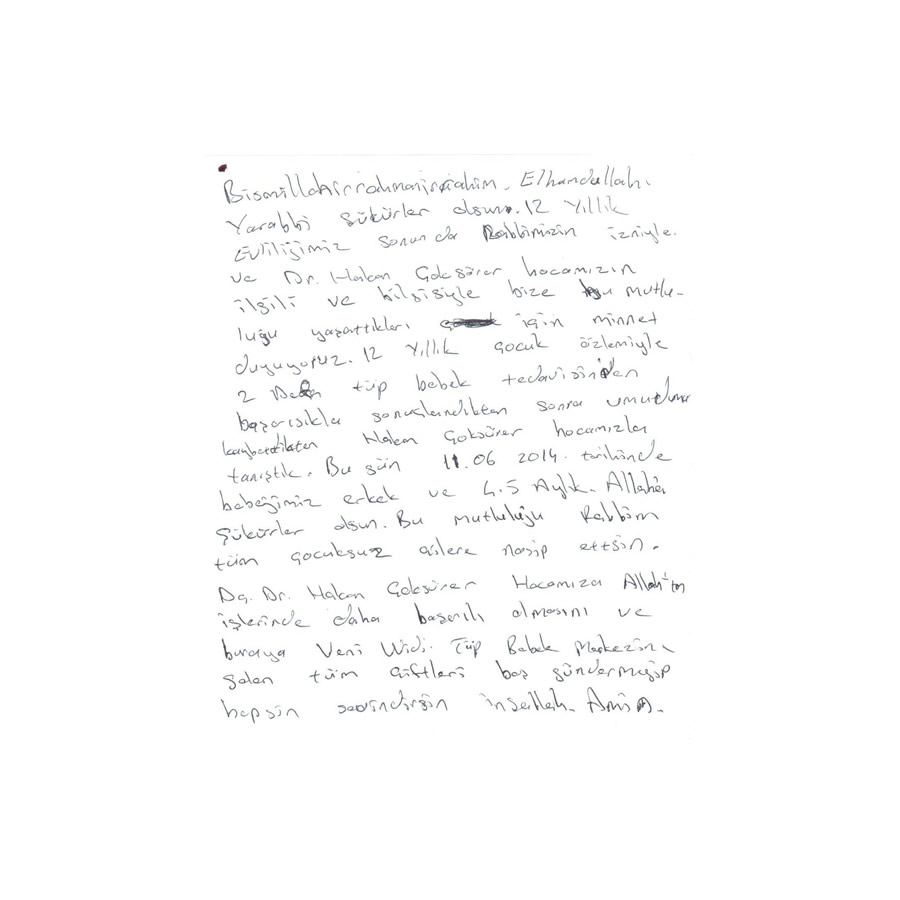 Bismillahirrahmanirrahim. Elhamdullah.
Yarabbi Şükürler olsun. 12 Yıllık
Evliliğimiz sonunda Rabbimizin izniyle.
ve Dr. Hakan Göksürer hocamızın
ilgili ve bilgisiyle bize bu mutlu-
luğu yaşattıkları için minnet
duyuyoruz. 12 Yıllık çocuk özlemiyle
2 tüp bebek tedavisinden
başarısıkla sonuçlandıkten sonra umudumu
kaybettikten Hakan Göksürer hocamızla
tanıştık. Bu gün 11.06 2014. tarihinde
bebeğimiz erkek ve 4.5 Aylık. Allaha
Şükürler olsun. Bu mutluluğu Rabbim
tüm çocuksuz ailere nasip ettsin.
Dç. Dr. Hakan Göksürer Hocamıza Allah'tan
işlerinde daha başarılı olmasını ve
buraya Veni Widi. Tüp Bebek Merkezine
Gelen tüm Çiftleri boş gündermeyip
hepsin sevindirsin inşallah. Amin.